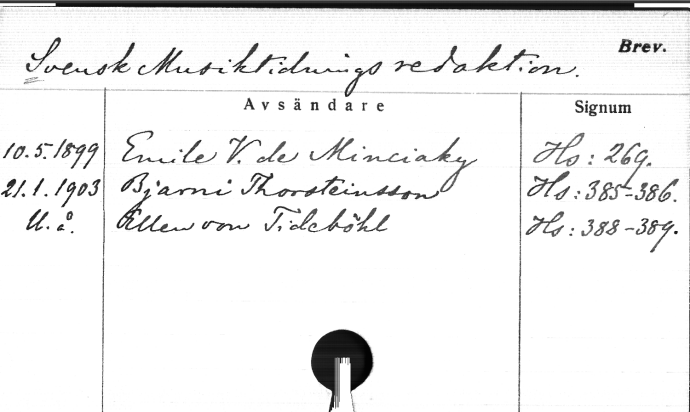 Brev.
Svensk Musiktidnings redaktion.
Avsändare Signum
10.5.1899 Emile V. de Minciaky Hs: 269.
21.1.1903 Bjarni Thorsteinsson Hs: 385-386.
U. å. Ellen von Tideböhl Hs: 388-389.